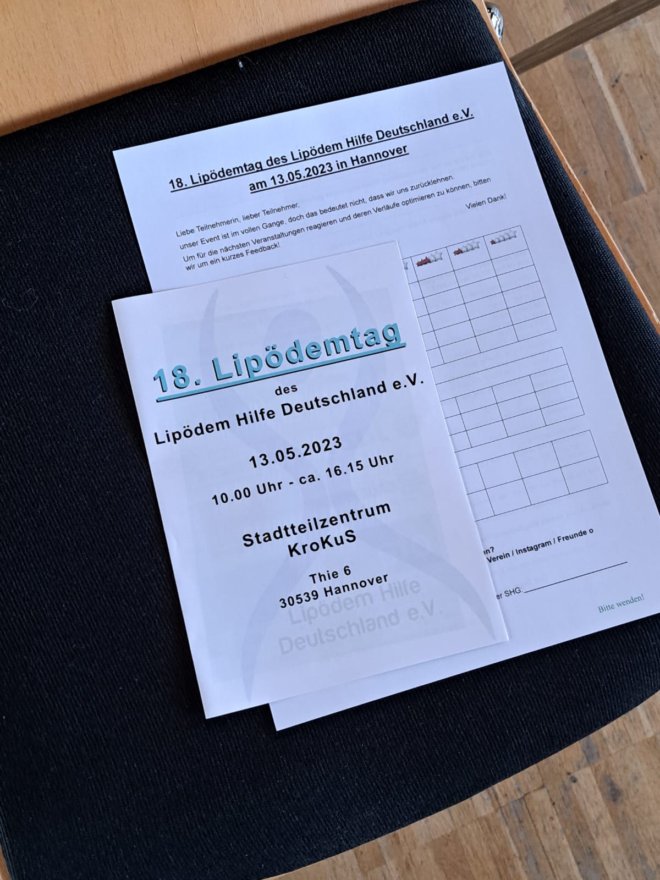 18. Lipödemtag des Lipödem Hilfe Deutschland e.V.
am 13.05.2023 in Hannover
Liebe Teilnehmerin, lieber Teilnehmer,
unser Event ist im vollen Gange, doch das bedeutet nicht, dass wir uns zurücklehnen.
Um für die nächsten Veranstaltungen reagieren und deren Verläufe optimieren zu können, bitten
wir um ein kurzes Feedback!
Vielen Dank!
18. Lipödemtag
des
Lipödem Hilfe Deutschland e.V.
13.05.2023
10.00 Uhr - ca. 16.15 Uhr
Stadtteilzentrum
KroKuS
Thie 6
30539 Hannover
Lipödem Hilfe
Deutschland e.V.
in?
Verein / Instagram / Freunde o
er SHG:
Bitte wenden!